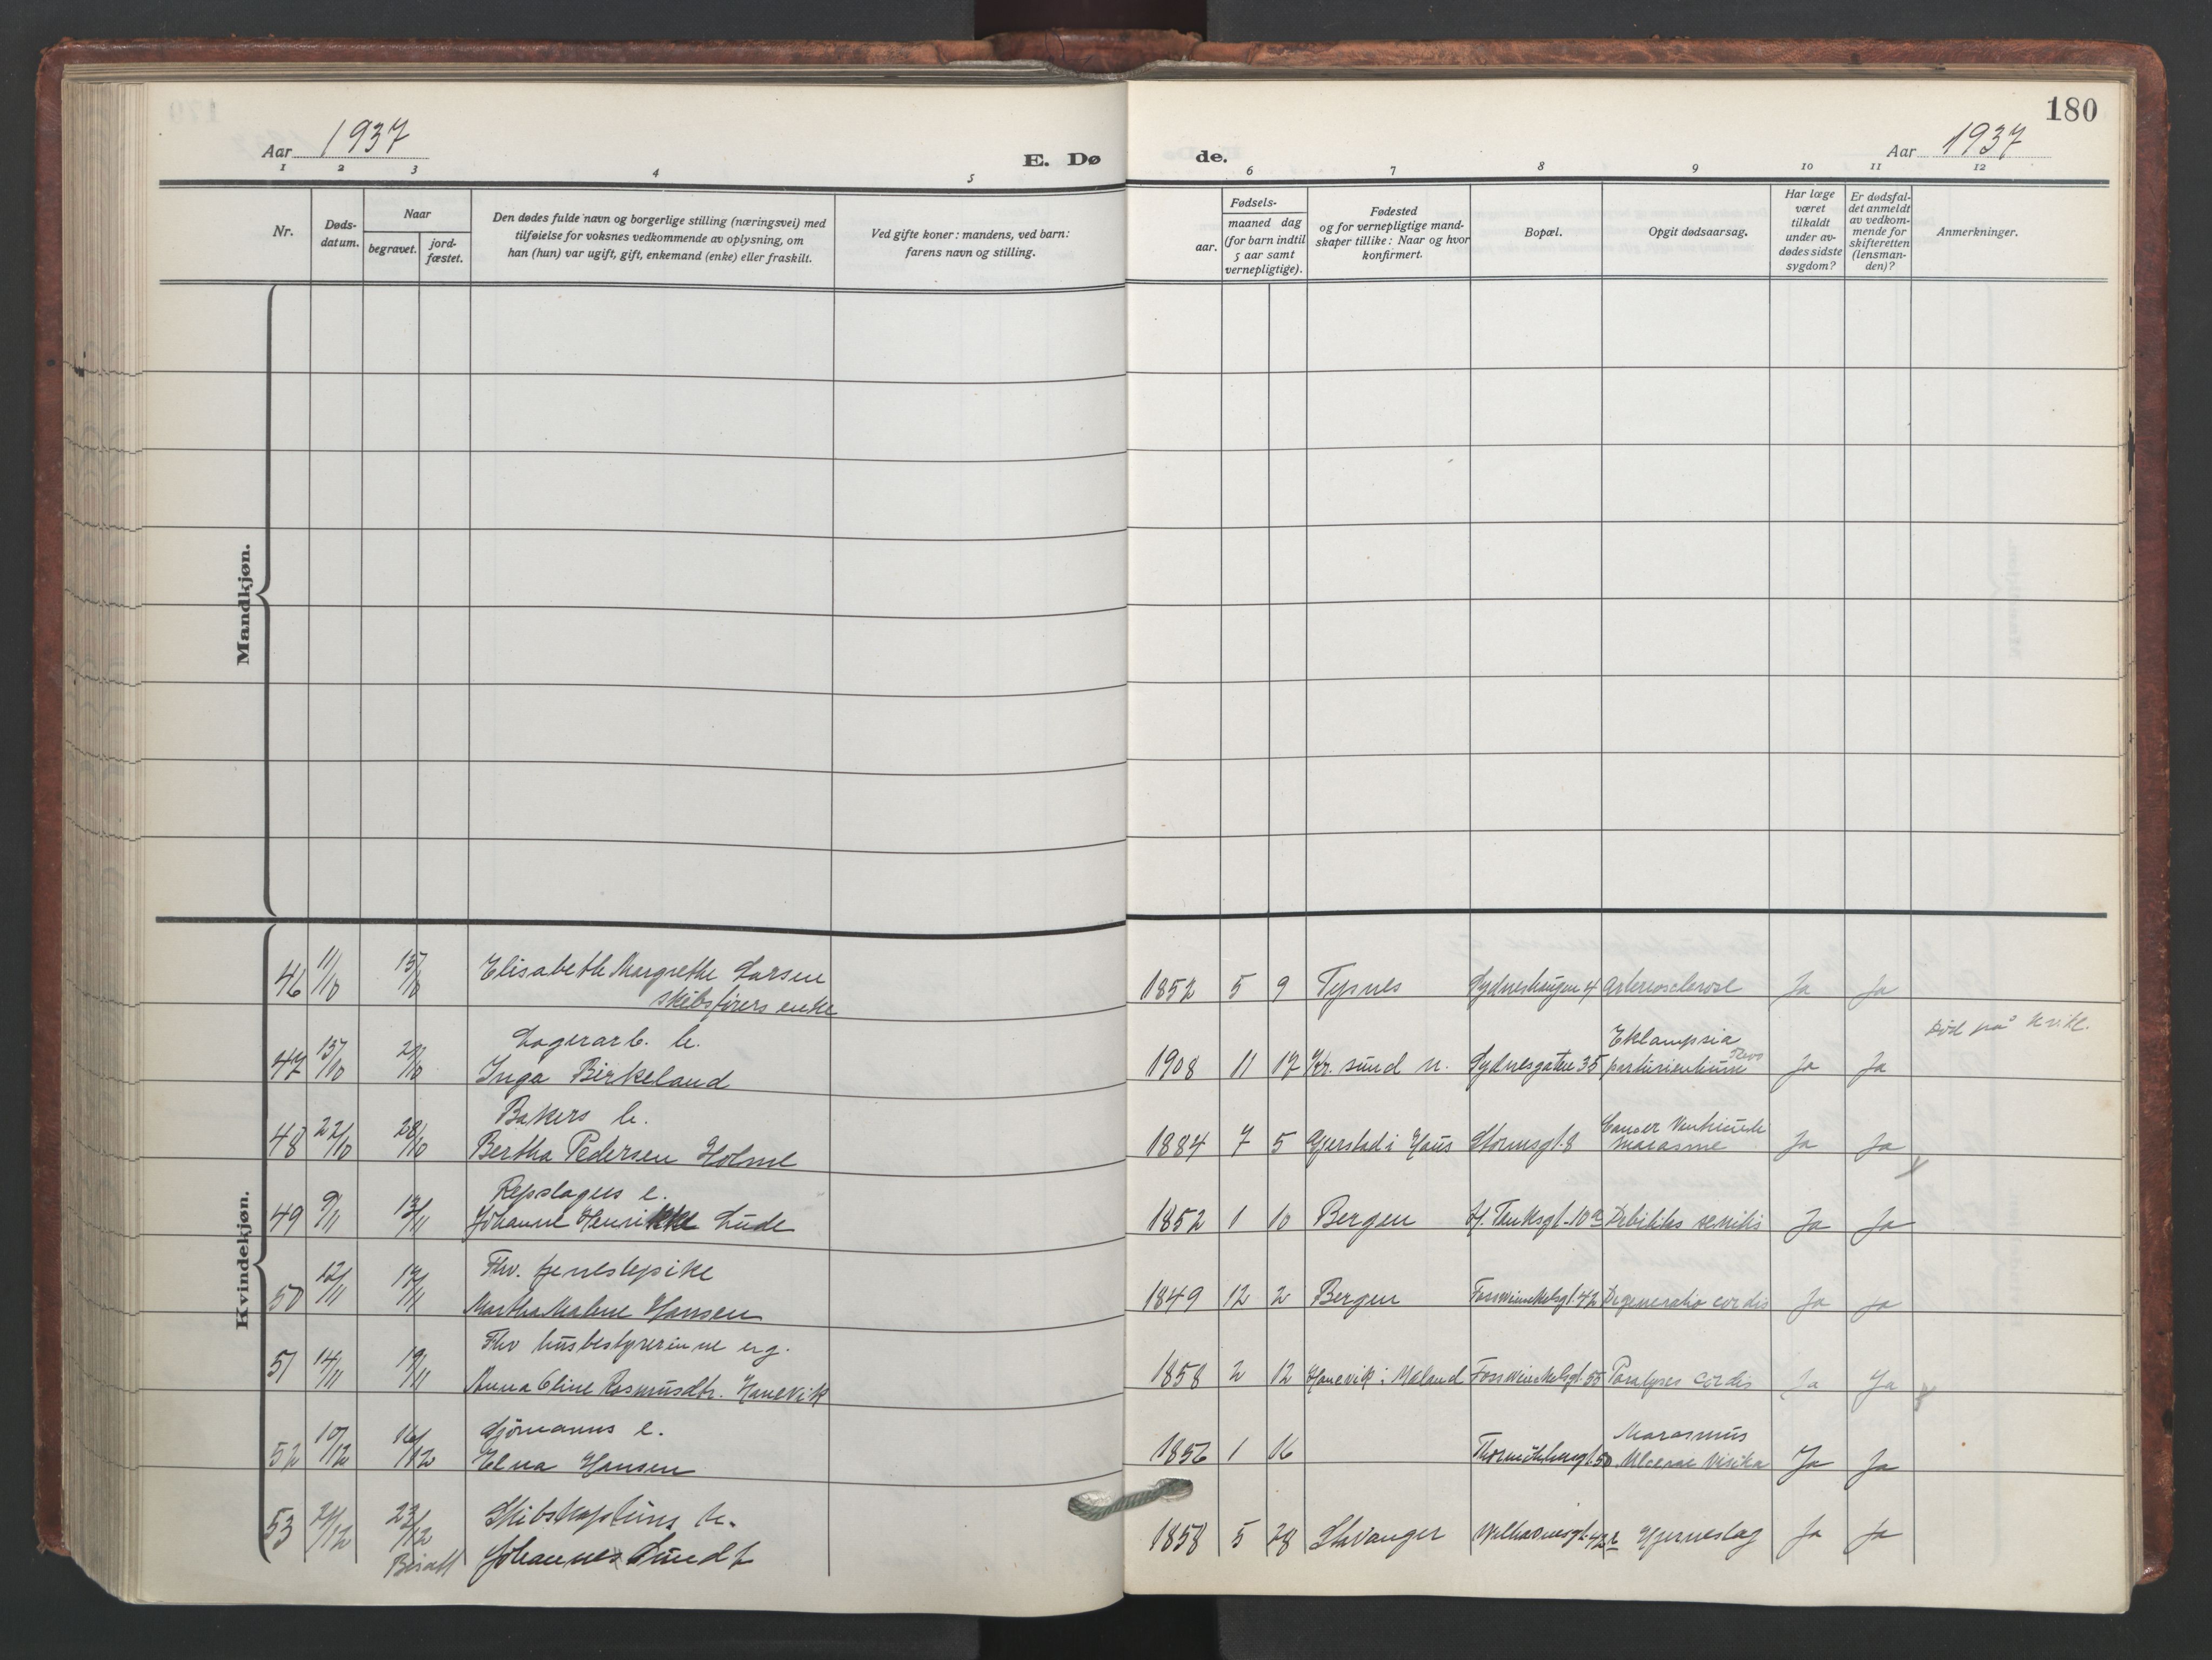 180
Aar 1937
E. Dø
de.
Aar 1937
1 2 3 4 5 6 7 8 9 10 11 12
Nr.
Døds-
datum.
Naar
begravet.
jord-
fæstet.
Den dødes fulde navn og borgerlige stilling (næringsvei) med
tilføielse for voksnes vedkommende av oplysning, om
han (hun) var ugift, gift, enkemand (enke) eller fraskilt.
Ved gifte koner: mandens, ved barn:
farens navn og stilling.
Fødsels-
aar.
maaned dag
(for barn indtil
5 aar samt
vernepligtige).
Fødested
og for vernepligtige mand-
skaper tillike: Naar og hvor
konfirmert.
Bopæl.
Opgit dødsaarsag.
Har læge
været
tilkaldt
under av-
dødes sidste
sygdom?
Er dødsfal-
det anmeldt
av vedkom-
mende for
skifteretten
(lensman-
den)?
Anmerkninger.
Mandkjøn.
Kvindekjøn.
46 11/10 15/10 Elisabeth Margrethe Larsen
skibsførers enke
1852 5 9 Tysnes Sydneshaugen 4 Arteriosclerose Ja Ja
Lagerarb. h.
47 15/10 21/10 Inga Birkeland
Eklampsia
1908 11 17 Kr. sund n. Sydnesgaten 35 parturientium Ja Ja
Død på kvikl.
Bakers h.
48 22/10 28/10 Bertha Pedersen Holme
1884 7 5 Gjerstad i Haus Stormsgt. 8 Cancer Ventriculi
Marasme Ja Ja
Repslagers e.
49 9/11 13/11 Johanne Henrikke Lude
1852 1 10 Bergen H. Tanksgt. 10 Debilitas senilis Ja Ja
Fhv. tjenestepike
50 12/11 17/11 Martha Malene Hansen
1849 12 2 Bergen Fosswinckelsgt. 42 Degeneratio cordis Ja Ja
Fhv husbestyrerinne ug.
51 14/11 19/11 Anna Oline Rasmusdtr. Hanevik
1858 2 12 Hanevik i Meland Fosswinckelsgt. 55 Paralyses cordis Ja Ja
Sjømanns e.
52 10/12 16/12 Elna Hansen
Marasmus
1856 1 16 Thormøhlensgt. 50 Ja Ja
Skibskapteins h.
53 21/12 23/12 Johannes Lundt
Bisatt
1858 5 28 Stavanger Welhavensgt. 42 Hjerneslag Ja Ja